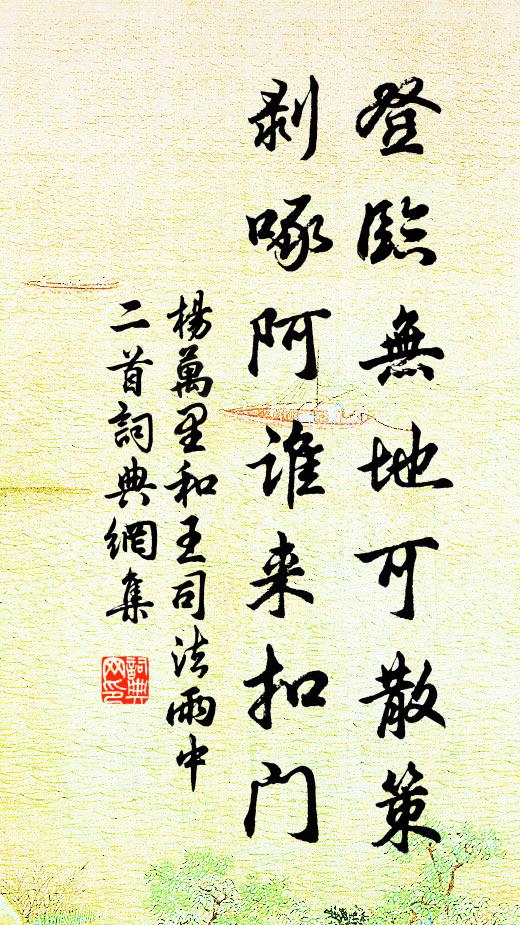 登臨無地可散策
剥啄阿谁来扣门
楊萬里和王司法雨中
二首詞典網集
詞典网印